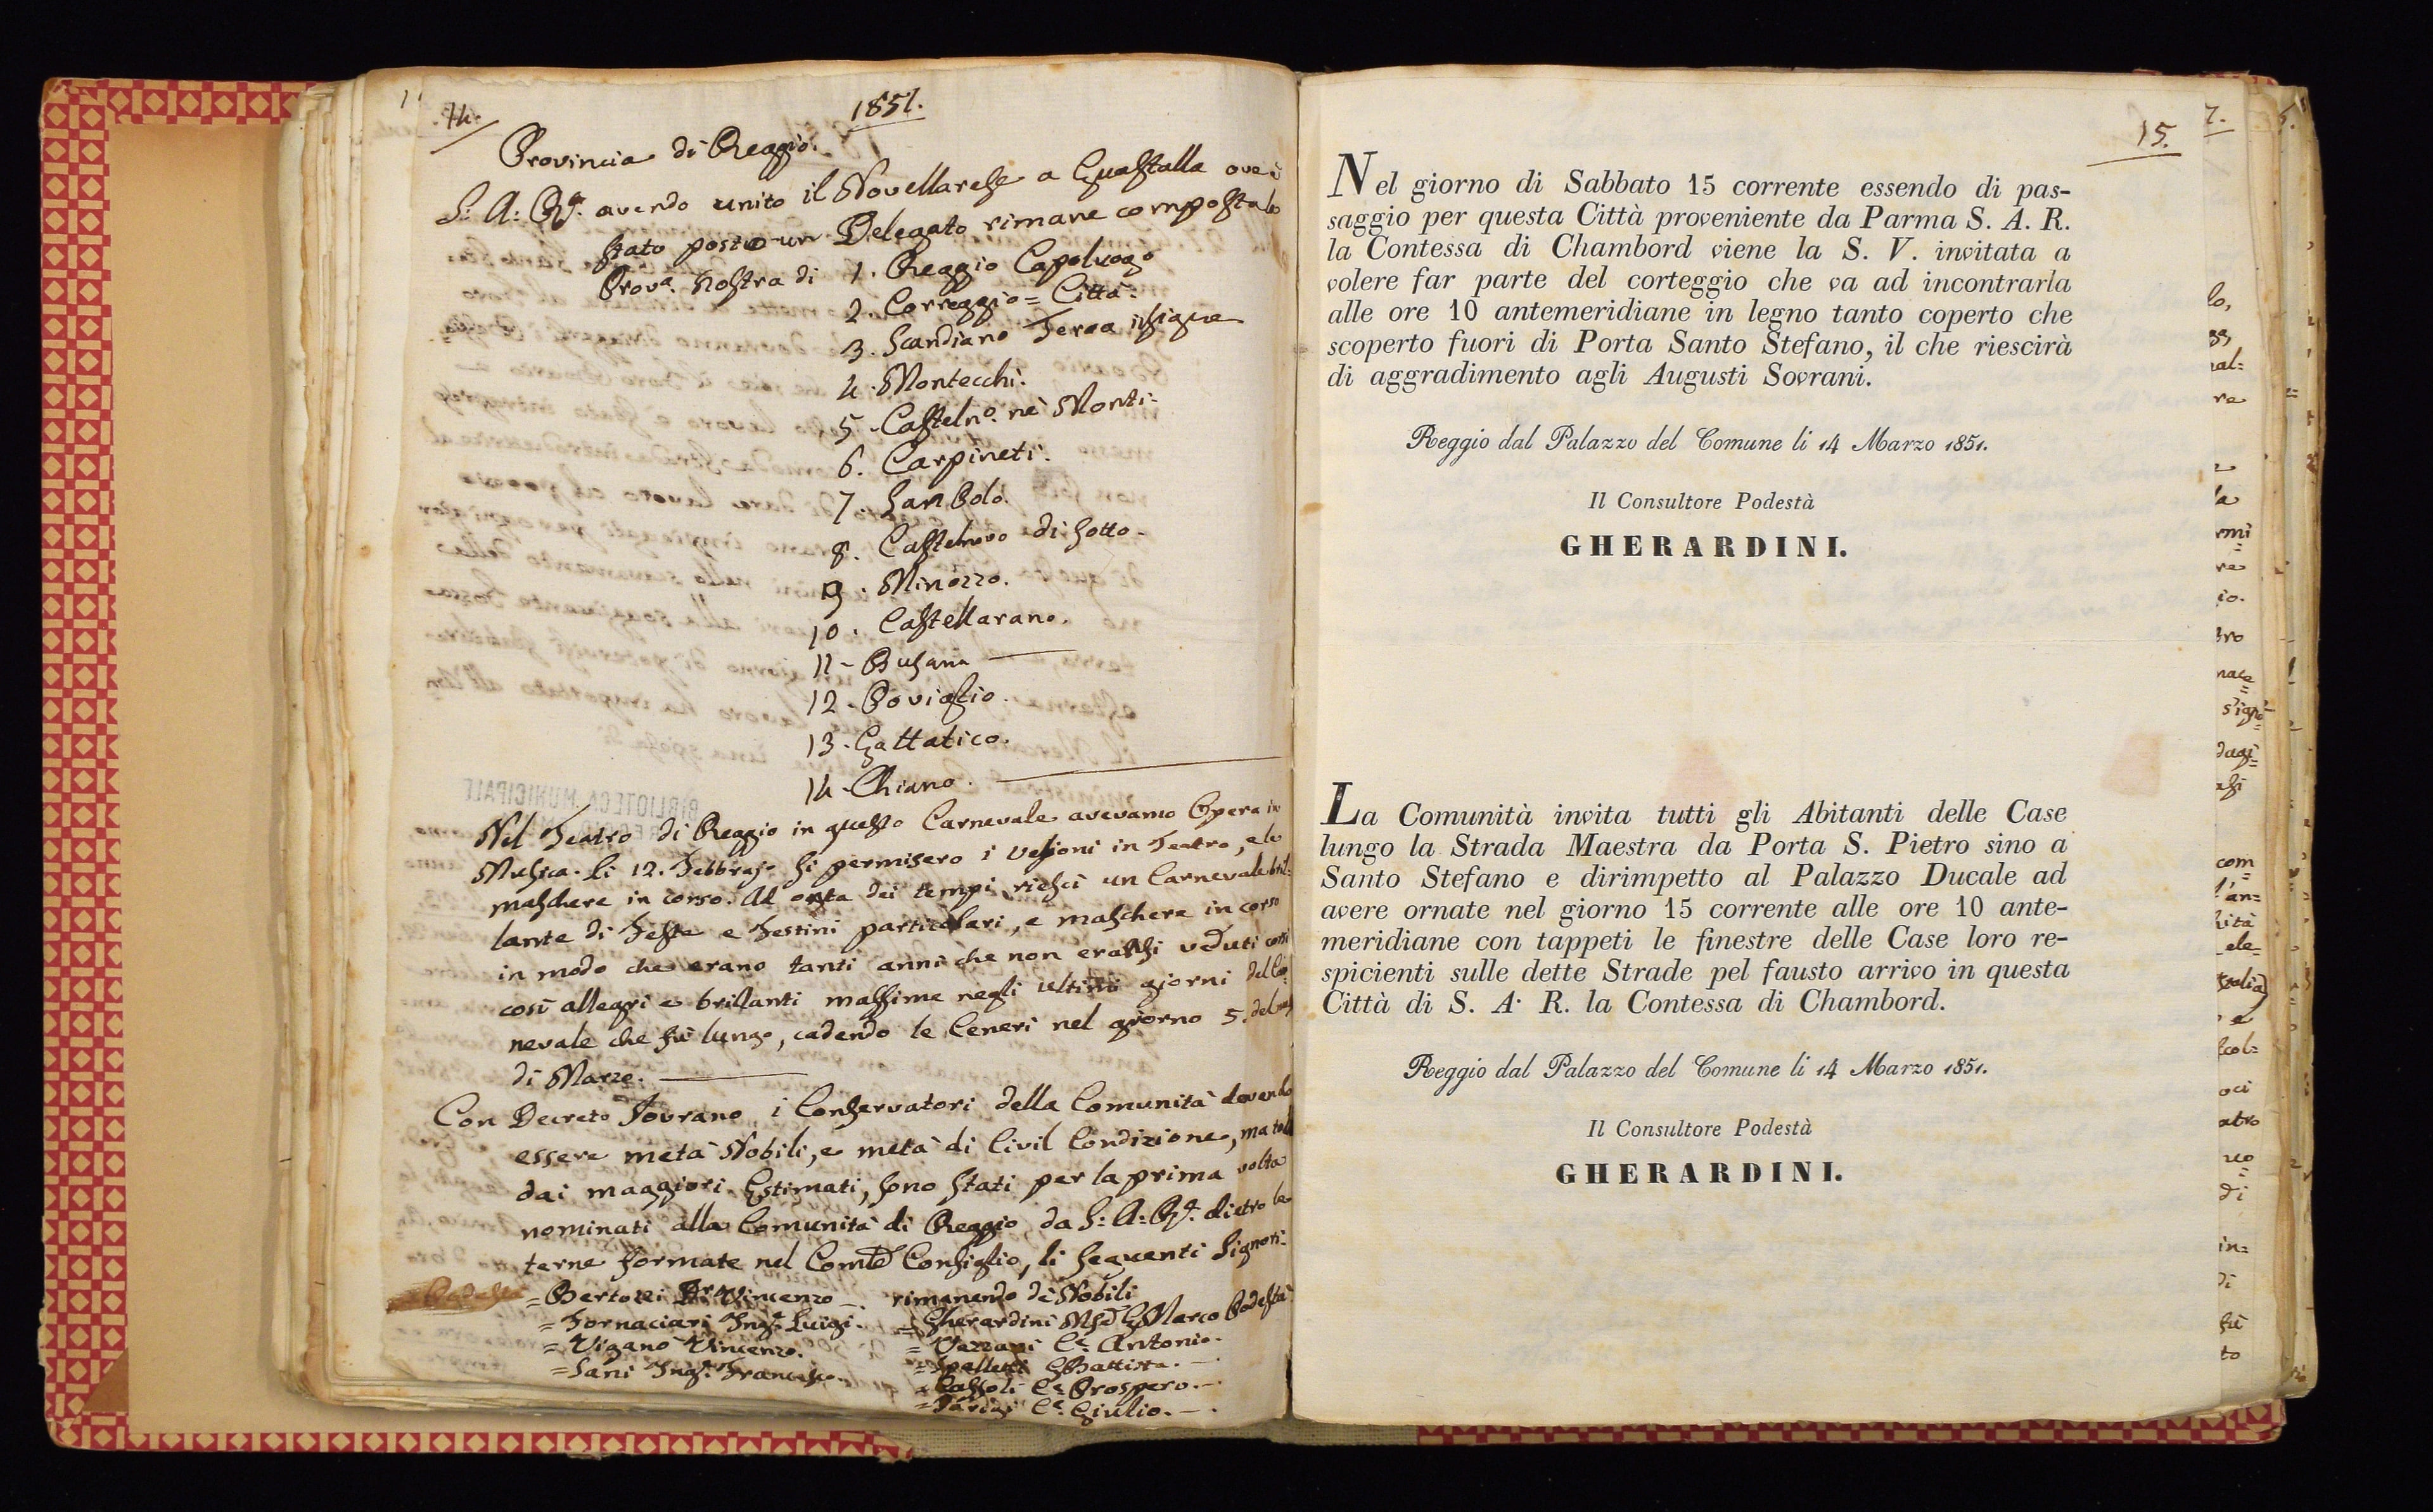 14.
1851.
Provincia di Reggio.
S: A: R. avendo unito il Novellarese a Guastalla ove è
stato posto un Delegato rimane composta la
Prov.a nostra di 1. Reggio Capoluogo
2. Correggio = Città.
3. Scandiano Terra insigne
4. Montecchi.
5. Casteln.o né Monti.
6. Carpineti.
7. San Polo.
8. Castelnovo di Sotto.
9. Minozzo.
10. Castellarano.
11 - Busana
12 - Poviglio.
13. Gattatico.
14 - Chiano.
Nel Teatro di Reggio in questo Carnevale avevamo Opera in
Musica. li 12. Febbrajo si permisero i Veglioni in Teatro, e le
maschere in corso. Ad onta dei tempi riescì un Carnevale bril-
lante di Feste e Festini particolari, e maschere in corso
in modo che erano tanti anni che non eransi veduti corsi
così allegri e brillanti massime negli ultimi giorni del Car-
nevale che fù lungo, cadendo le Ceneri nel giorno 5. del
di Marzo.
Con Decreto Sovrano i Conservatori della Comunità dovendo
essere metà Nobili, e metà di Civil Condizione, ma tolti
dai maggiori Estimati, sono stati per la prima volta
nominati alla Comunità di Reggio da S: A: R. dietro le
terne formate nel Consiglio, li seguenti Signori.
Podestà = Bertozzi Vincenzo rimanendo dè Nobili
= Fornaciari Ing.e Luigi. = Gherardini Marco Podestà
= Vigano Vincenzo. = Vezzani C.e Antonio.
= Sani Ing.e Francesco. = Spalletti GBattista.
= Cassoli C.e Prospero.
= C.e Giulio.
15.
Nel giorno di Sabbato 15 corrente essendo di pas-
saggio per questa Città proveniente da Parma S. A. R.
la Contessa di Chambord viene la S. V. invitata a
volere far parte del corteggio che va ad incontrarla
alle ore 10 antemeridiane in legno tanto coperto che
scoperto fuori di Porta Santo Stefano, il che riescirà
di aggradimento agli Augusti Sovrani.
Reggio dal Palazzo del Comune li 14 Marzo 1851.
Il Consultore Podestà
GHERARDINI.
La Comunità invita tutti gli Abitanti delle Case
lungo la Strada Maestra da Porta S. Pietro sino a
Santo Stefano e dirimpetto al Palazzo Ducale ad
avere ornate nel giorno 15 corrente alle ore 10 ante-
meridiane con tappeti le finestre delle Case loro re-
spicienti sulle dette Strade pel fausto arrivo in questa
Città di S. A. R. la Contessa di Chambord.
Reggio dal Palazzo del Comune li 14 Marzo 1851.
Il Consultore Podestà
GHERARDINI.